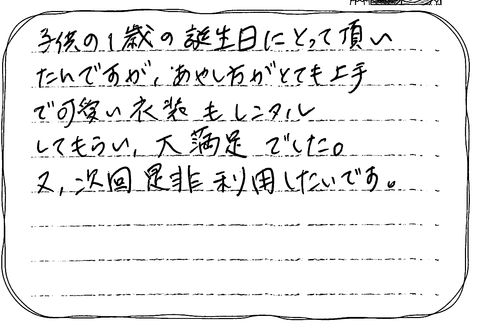 子供の1歳の誕生日にとって頂い
たんですが、あやし方がとても上手
で可愛い衣装もレンタル
してもらい、大満足でした。
又、次回是非利用したいです。